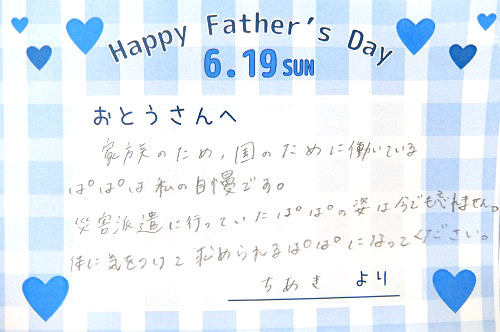 Happy Father's Day
6.19 SUN
おとうさんへ
家族のため、国のために働いている
ぱぱは私の自慢です。
災害派遣に行っていたぱぱの姿は今でも忘れません。
体に気をつけて求められるぱぱになってください。
ちあき より